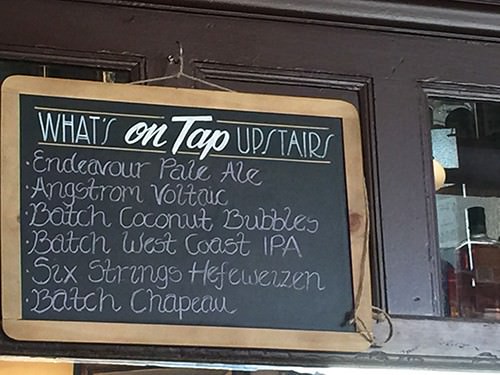 WHAT'S on Tap UPSTAIRS
· Endeavour Pale Ale
· Angstrom Voltaic
· Batch Coconut Bubbles
· Batch West Coast IPA
· Six Strings Hefeweizen
· Batch Chapeau